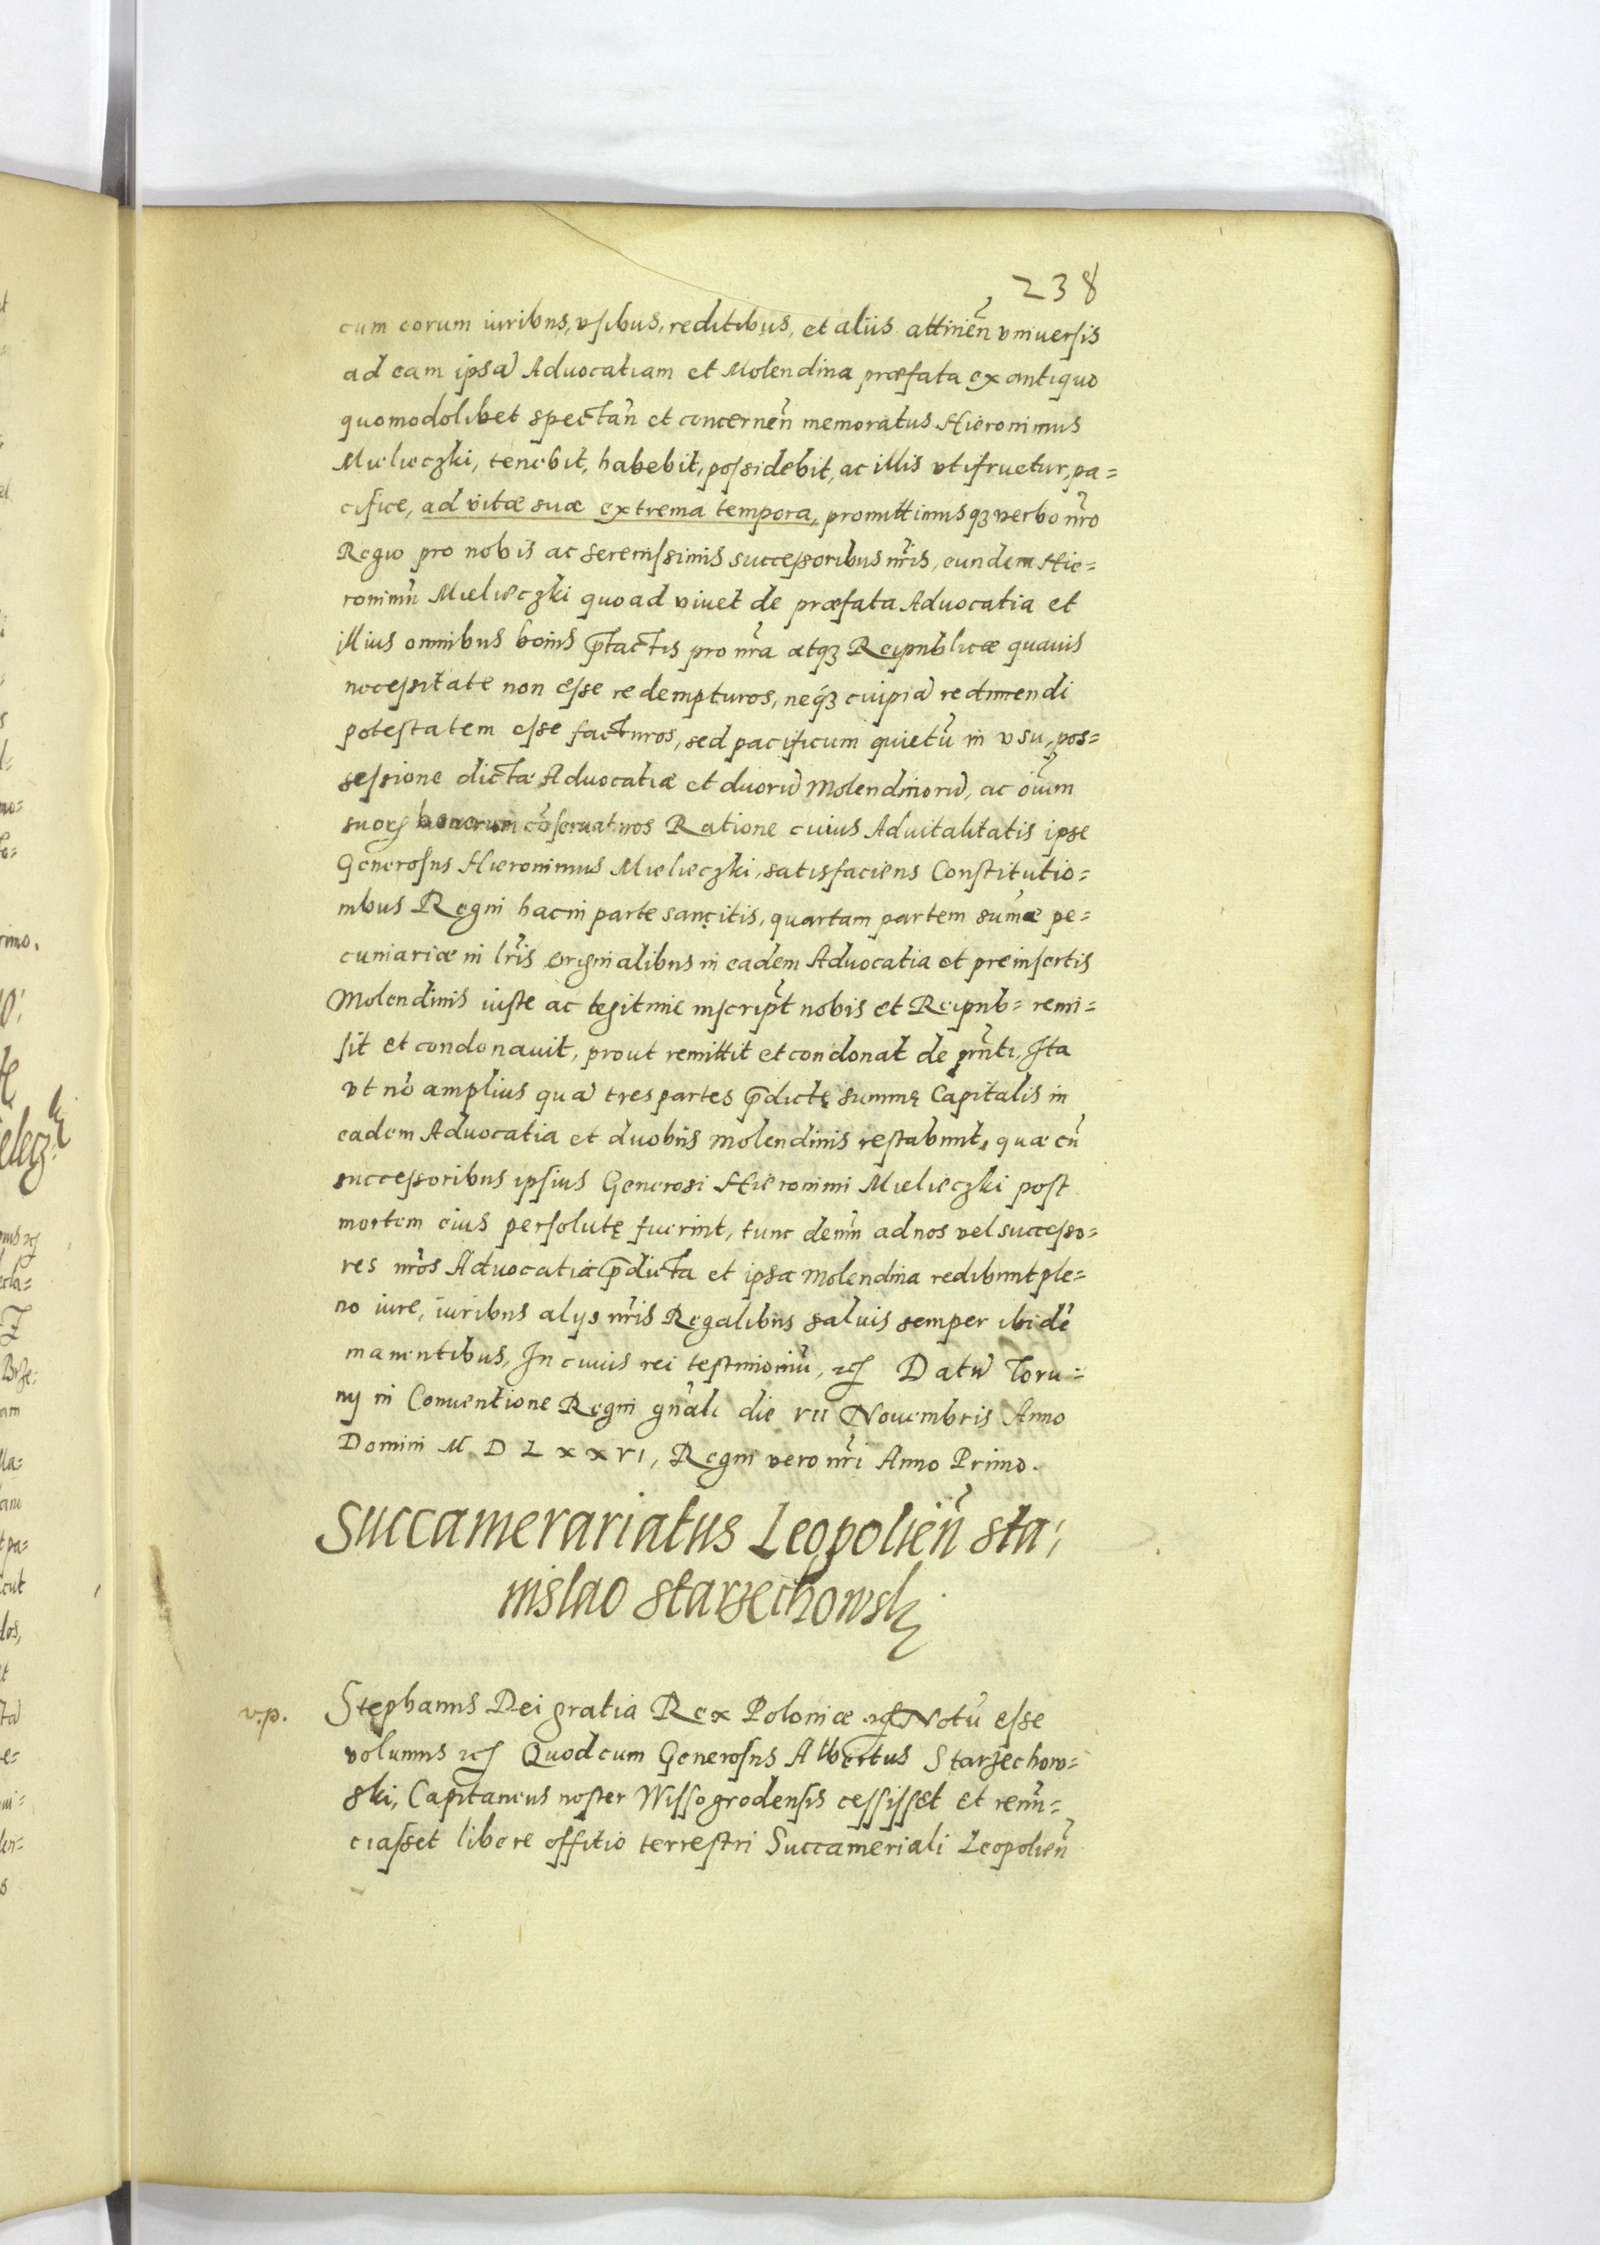 238
cum eorum iuribus, vsibus, reditibus, et aliis attineñ vniuersis
ad eam ipsã Aduocatiam et Molendina præfata ex antiquo
quomodolibet spectañ et concerneñ memoratus Hieronimus
Mielieczki, tenebit, habebit, possidebit, ac illis vtifruetur, pa=
cifice, ad vitæ suæ extrema tempora, promittimusqꝫ verbo nr̃o
Regio pro nobis ac serenissimis successoribus nr̃is, eundem Hie=
ronimũ Mielieczki quoad viuet de præfata Aduocatia et
illius omnibus bonis p̃tactis pro nr̃a atqꝫ Reipublicæ quauis
necessitate non esse redempturos, neqꝫ cuipiã redimendi
potestatem esse facturos, sed pacificum quietũ in vsu, pos=
sessione dictæ Aduocatiæ et duorũ Molendinorũ, ac oĩum
suoꝝ bonorum cõseruaturos Ratione cuius Aduitalitatis ipse
Generosus Hieronimus Mielieczki, satisfaciens Constitutio=
nibus Regni hac in parte sancitis, quartam partem sum̃æ pe=
cuniariæ in lr̃is originalibus in eadem Aduocatia et preinsertis
Molendinis iuste ac legitime inscript̃ nobis et Reipub= remi=
sit et condonauit, prout remittit et condonat de pñti, Ita
vt nõ amplius quã tres partes p̃dictę summę Capitalis in
eadem Aduocatia et duobus molendinis restabunt, quæ cũ
successoribus ipsius Generosi Hieronimi Mielieczki post
mortem eius persolutę fuerint, tunc demũ ad nos vel successo=
res nr̃os Aduocatia p̃dicta et ipsa molendina redibunt ple=
no iure, iuribus alijs nr̃is Regalibus saluis semper ibidẽ
manentibus, In cuius rei testimoniũ, ꝛꝭ Datũ Toru=
nij in Conuentione Regni gñali die VII Nouembris Anno
Domini M D L X X VI, Regni vero nr̃i Anno Primo.
Succamerariatus Leopolieñ Sta=
nislao Starzechowski
v.p.
Stephanus Dei gratia Rex Poloniæ ꝛꝭ Notũ esse
volumus ꝛꝭ Quod cum Generosus Albertus Starzechow=
ski, Capitaneus noster Wissogrodensis cessisset et renũ=
ciasset libere offitio terrestri Succameriali Leopolieñ